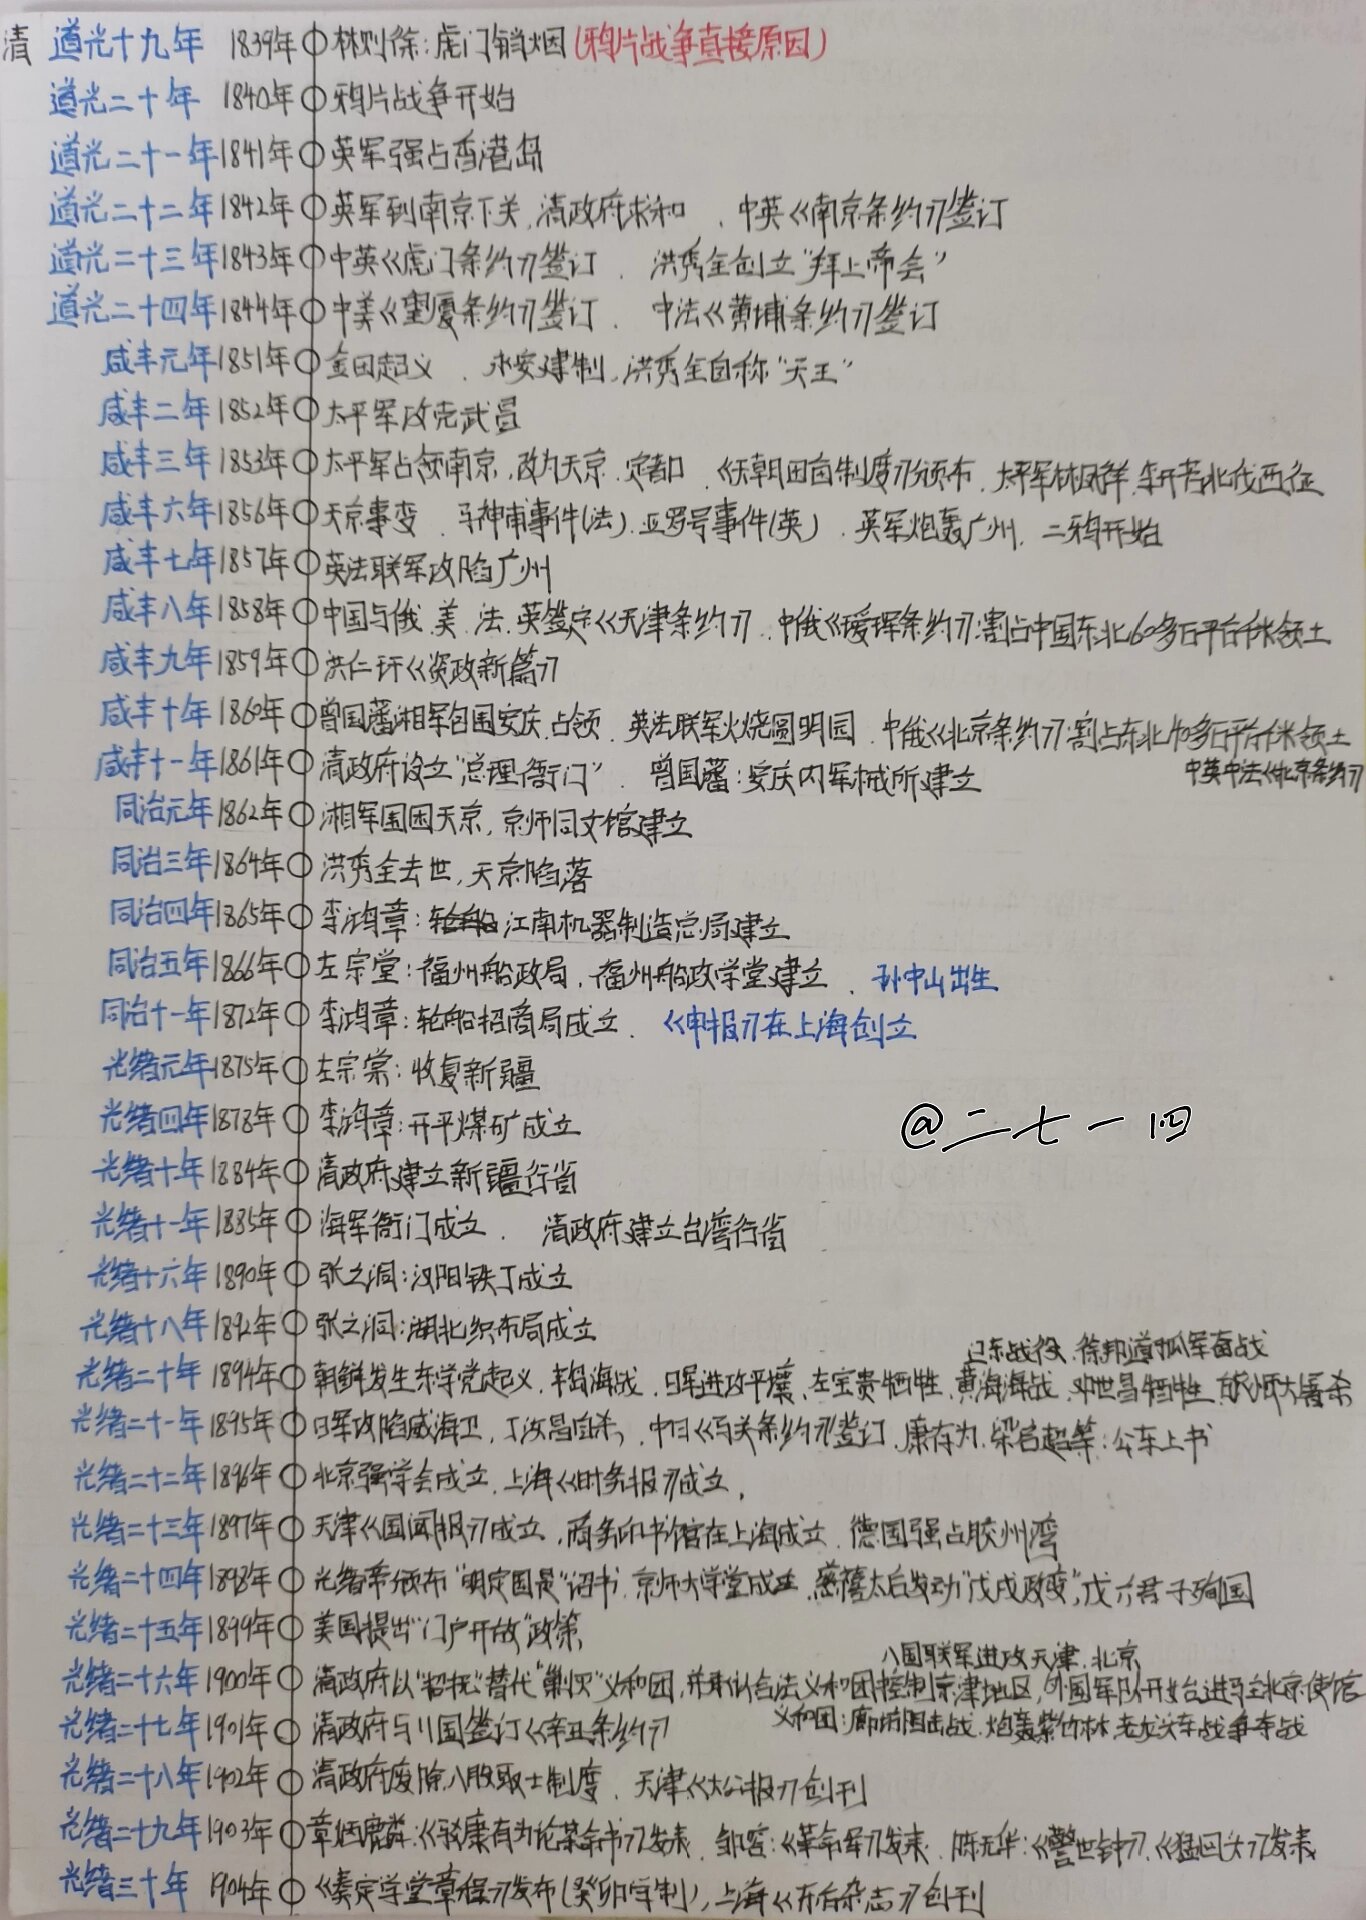 清 道光十九年 1839年 林则徐:虎门销烟(鸦片战争直接原因)
道光二十年 1840年 鸦片战争开始
道光二十一年 1841年 英军强占香港岛
道光二十二年 1842年 英军到南京下关,清政府求和、中英《南京条约》签订
道光二十三年 1843年 中英《虎门条约》签订、洪秀全创立“拜上帝会”
道光二十四年 1844年 中美《望厦条约》签订、中法《黄埔条约》签订
咸丰元年 1851年 金田起义、永安建制,洪秀全自称“天王”
咸丰二年 1852年 太平军攻克武昌
咸丰三年 1853年 太平军占领南京,改为天京、定都、《天朝田亩制度》颁布、太平军林凤祥、李开芳北伐西征
咸丰六年 1856年 天京事变、马神甫事件(法)、亚罗号事件(英)、英军炮轰广州,二鸦开始
咸丰七年 1857年 英法联军攻陷广州
咸丰八年 1858年 中国与俄、美、法、英签定《天津条约》、中俄《瑷珲条约》:割占中国东北60多万平方千米领土
咸丰九年 1859年 洪仁玕《资政新篇》
咸丰十年 1860年 曾国藩湘军包围安庆,占领、英法联军火烧圆明园、中俄《北京条约》:割占东北40多万平方千米领土
中英中法《北京条约》
咸丰十一年 1861年 清政府设立“总理衙门”、曾国藩:安庆内军械所建立
同治元年 1862年 湘军围困天京,京师同文馆建立
同治三年 1864年 洪秀全去世,天京陷落
同治四年 1865年 李鸿章:江南机器制造总局建立
同治五年 1866年 左宗堂:福州船政局、福州船政学堂建立、孙中山出生
同治十一年 1872年 李鸿章:轮船招商局成立、《申报》在上海创立
光绪元年 1875年 左宗棠:收复新疆
光绪四年 1878年 李鸿章:开平煤矿成立
@二七一四
光绪十年 1884年 清政府建立新疆行省
光绪十一年 1885年 海军衙门成立、清政府建立台湾行省
光绪十六年 1890年 张之洞:汉阳铁丁成立
光绪十八年 1892年 张之洞:湖北织布局成立
旦东战役、徐邦道孤军奋战
光绪二十年 1894年 朝鲜发生东学党起义、丰岛海战、日军进攻平壤、左宝贵牺牲、黄海海战、邓世昌牺牲、旅顺大屠杀
光绪二十一年 1895年 日军攻陷威海卫,丁汝昌自杀、中日《马关条约》签订、康有为、梁启超等:公车上书
光绪二十二年 1896年 北京强学会成立、上海《时务报》成立、
光绪二十三年 1897年 天津《国闻报》成立、商务印书馆在上海成立、德国强占胶州湾
光绪二十四年 1898年 光绪帝颁布“明定国是”诏书、京师大学堂成立、慈禧太后发动“戊戌政变”,戊六君子殉国
光绪二十五年 1899年 美国提出“门户开放”政策
八国联军进攻天津、北京
光绪二十六年 1900年 清政府以“招抚”替代“剿灭”义和团,并承认合法义和团控制京津地区,外国军队开始进驻北京使馆
义和团:廊坊阻击战、炮轰紫竹林、老龙头车战争夺战
光绪二十七年 1901年 清政府与11国签订《辛丑条约》
光绪二十八年 1902年 清政府废除八股取士制度、天津《大公报》创刊
光绪二十九年 1903年 章炳麟:《驳康有为论革命书》发表、邹容:《革命军》发表、陈天华:《警世钟》、《猛回头》发表
光绪三十年 1904年 《奏定学堂章程》发布(癸卯学制),上海《东方杂志》创刊